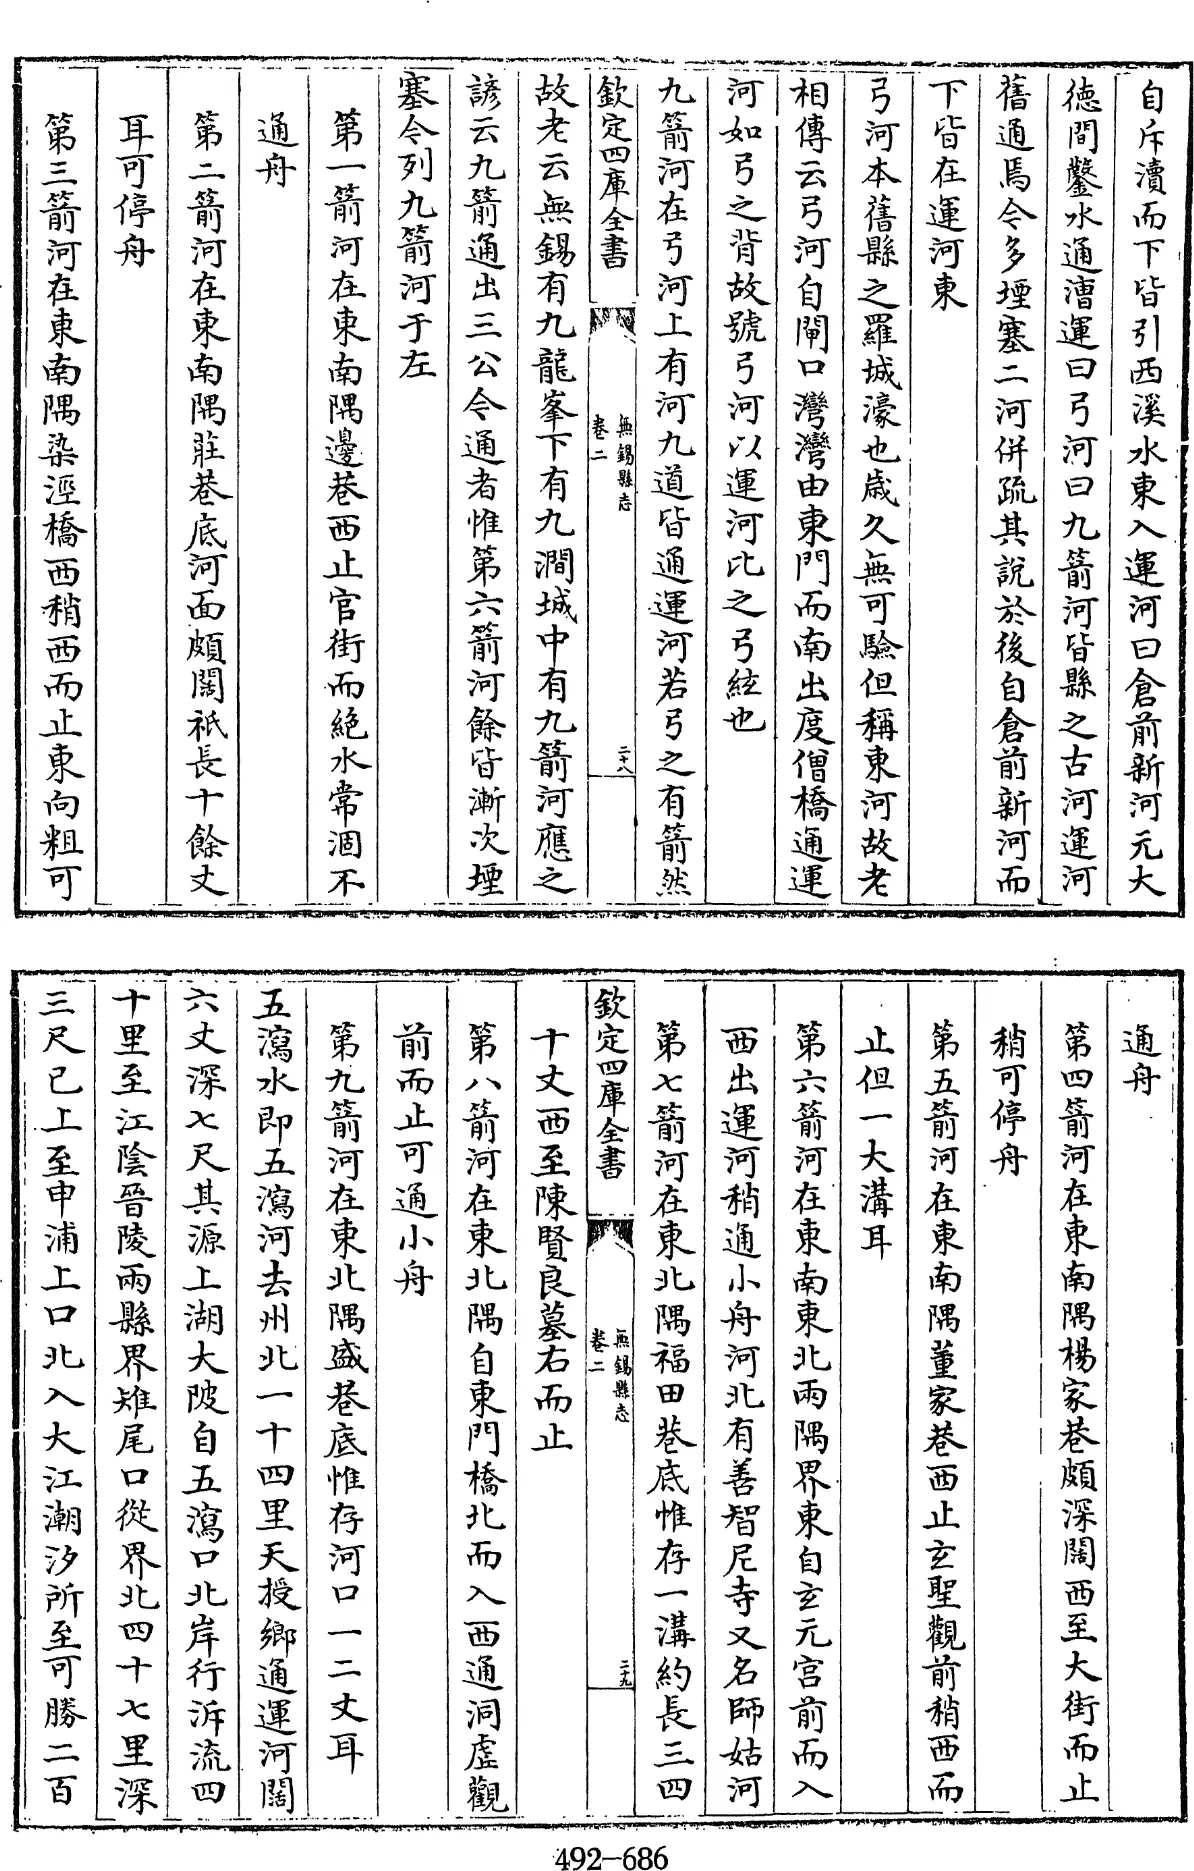 自斥瀆而下皆引西溪水東入運河曰倉前新河元大
德間鑿水通漕運曰弓河曰九箭河皆縣之古河運河
舊通焉今多堙塞二河併疏其說於後自倉前新河而
下皆在運河東
弓河本舊縣之羅城濠也歳久無可驗但稱東河故老
相傳云弓河自閘口灣灣由東門而南出度僧橋通運
河如弓之背故號弓河以運河比之弓絃也
九箭河在弓河上有河九道皆通運河若弓之有箭然
欽定四庫全書
無錫縣志
卷二
二十八
故老云無錫有九龍峯下有九澗城中有九箭河應之
諺云九箭通出三公今通者惟第六箭河餘皆漸次堙
塞今列九箭河于左
第一箭河在東南隅邊巷西止官街而絶水常涸不
通舟
第二箭河在東南隅莊巷底河面頗闊祇長十餘丈
耳可停舟
第三箭河在東南隅染涇橋西稍西而止東向粗可
通舟
第四箭河在東南隅楊家巷頗深闊西至大街而止
稍可停舟
第五箭河在東南隅董家巷西止玄聖觀前稍西而
止但一大溝耳
第六箭河在東南東北兩隅界東自玄元宮前而入
西出運河稍通小舟河北有善智尼寺又名師姑河
第七箭河在東北隅福田巷底惟存一溝約長三四
欽定四庫全書
無錫縣志
卷二
二十九
十丈西至陳賢良墓右而止
第八箭河在東北隅自東門橋北而入西通洞虛觀
前而止可通小舟
第九箭河在東北隅盛巷底惟存河口一二丈耳
五瀉水即五瀉河去州北一十四里天授鄉通運河闊
六丈深七尺其源上湖大陂自五瀉口北岸行泝流四
十里至江陰晉陵兩縣界雉尾口從界北四十七里深
三尺已上至申浦上口北入大江潮汐所至可勝二百
492-686